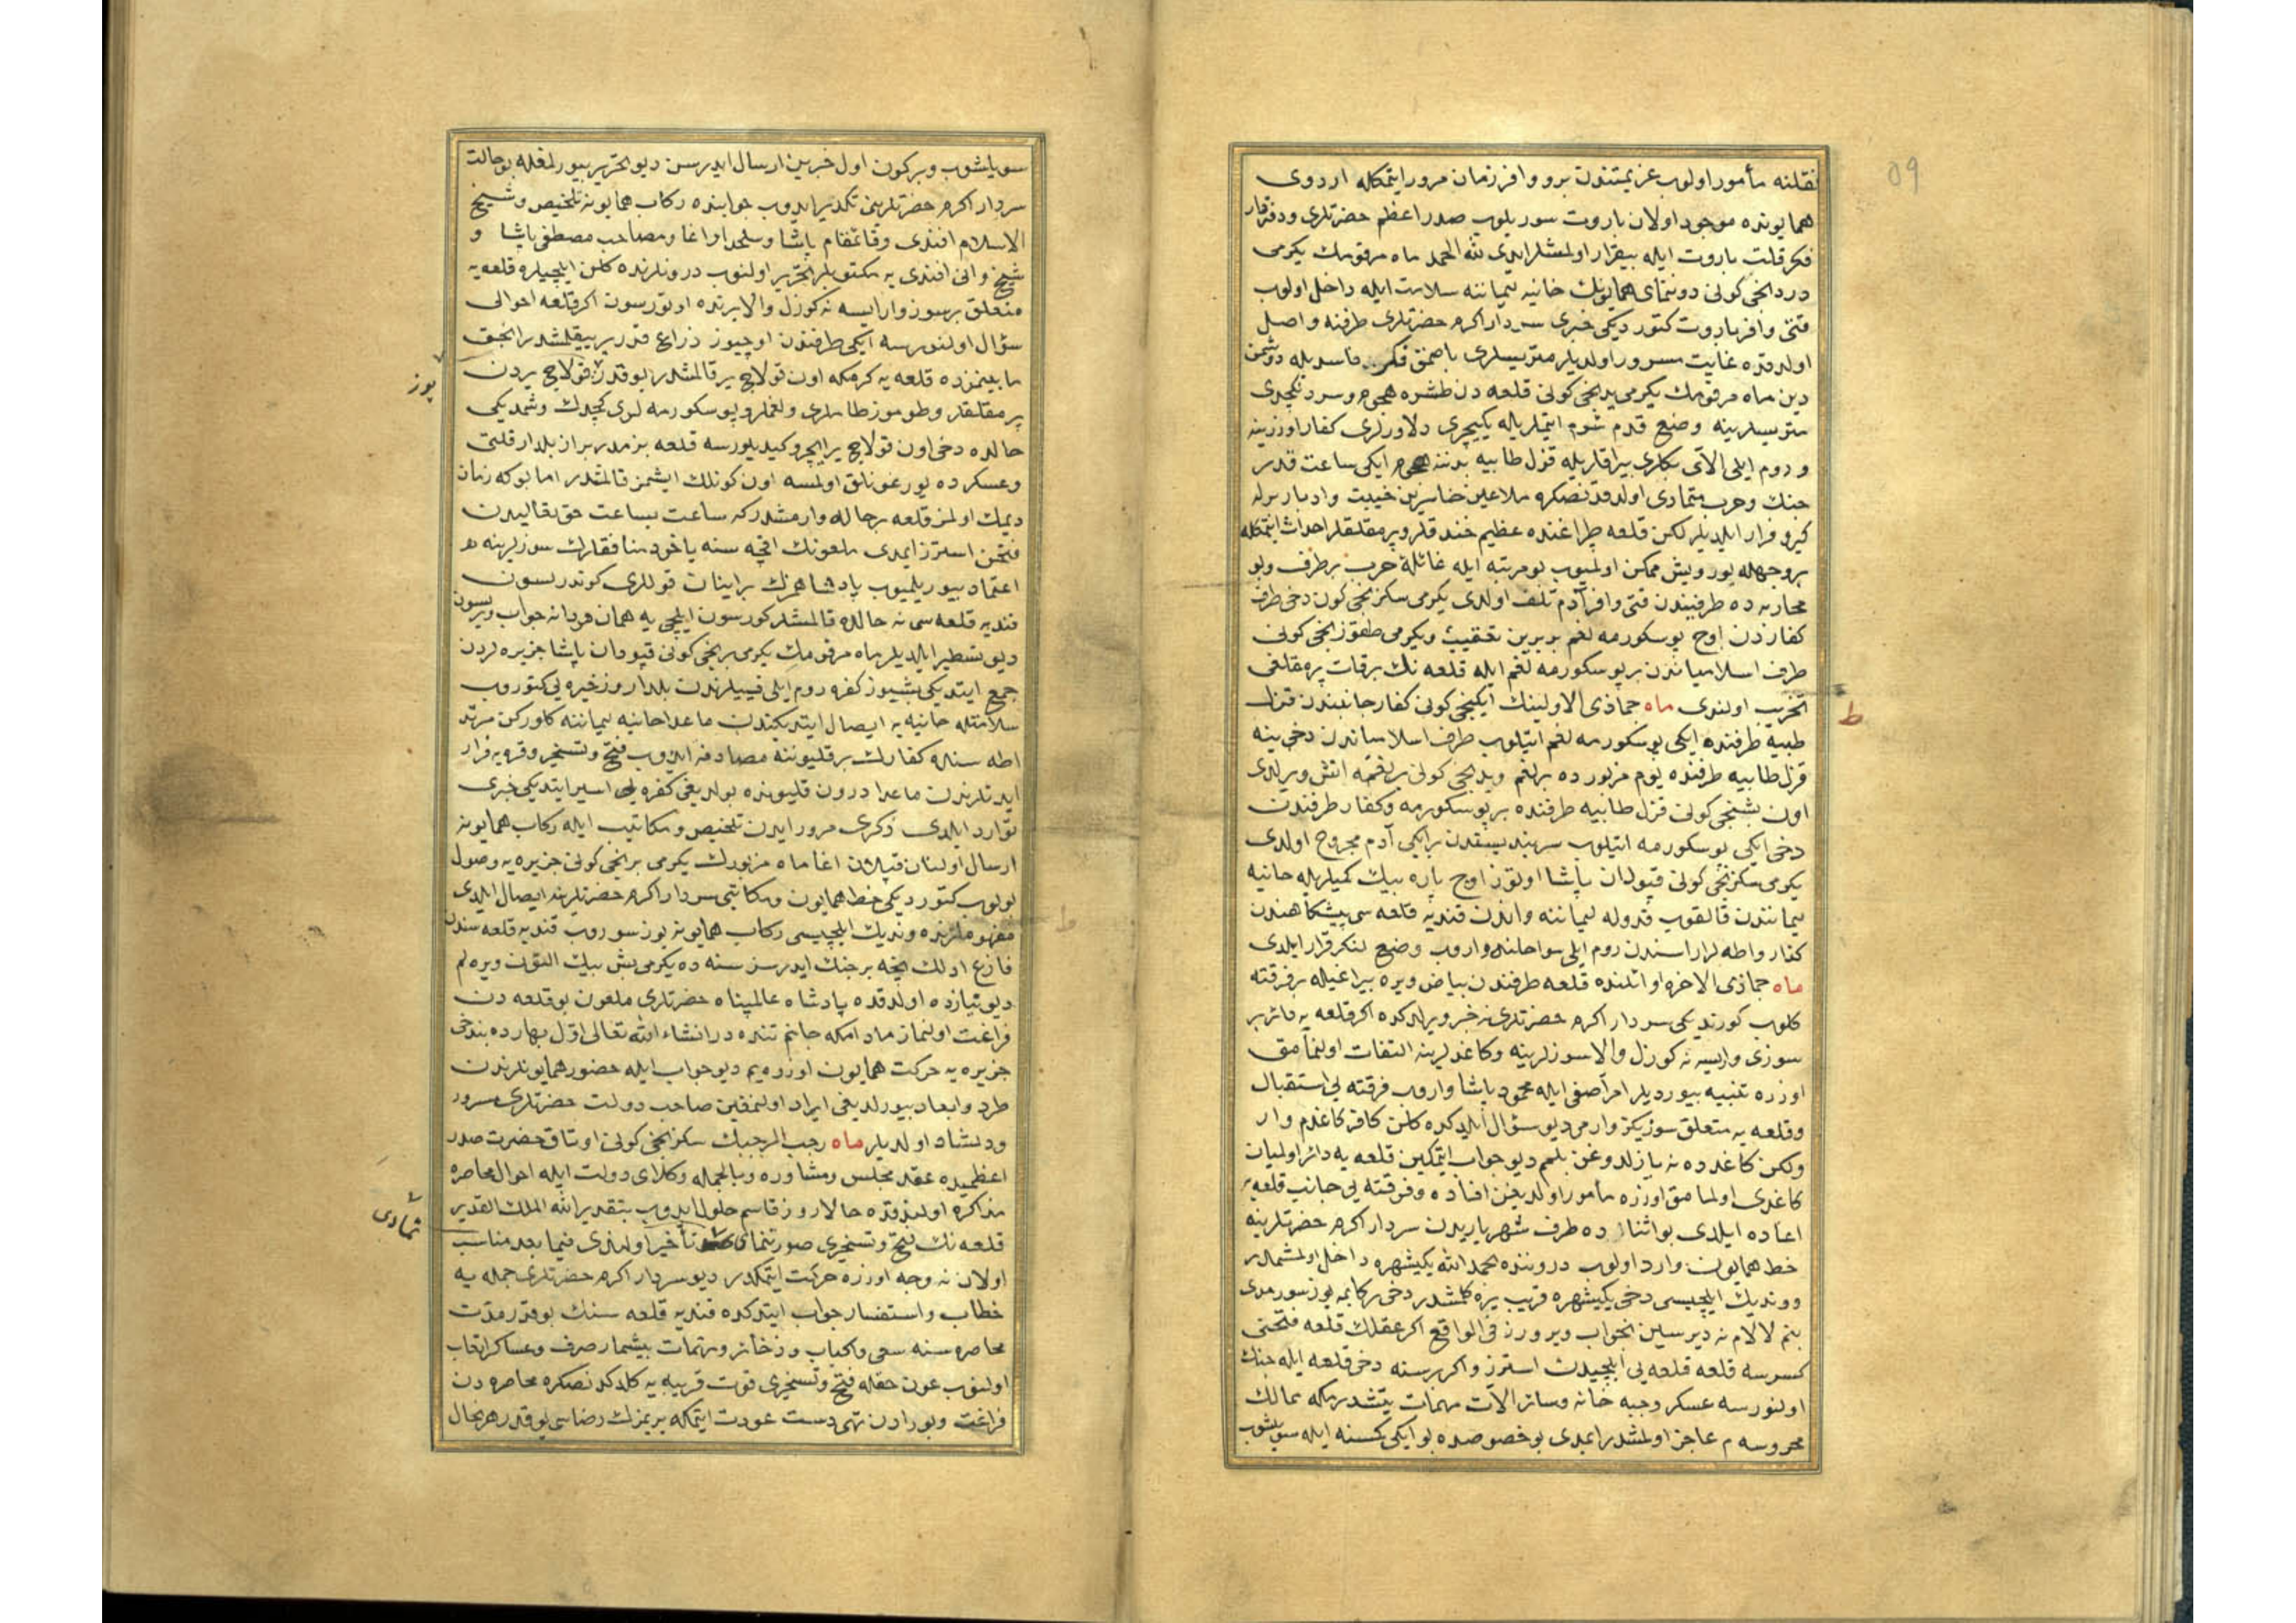 59
نقلنه مأمور اولوب عزیمتندن برو وافر زمان مرور ایتمکله اردوی
همایونده موجود اولان باروت سوریلوب صدر اعظم حضرتلری ودفتردار
فکر قلت باروت ایله بیقرار اولمشلر ایدی لله الحمد ماه مرقومک یکرمی
دردنجی کونی دوننمای همایونک حانیه لیماننه سلامت ایله داخل اولوب
قتی وافر باروت کتوردیکی خبری سردار اکرم حضرتلری طرفنه واصل
اولدقده غایت مسرور اولدیلر متریسلری باصمق فکر فاسدیله دوشمن
دین ماه مرقومک یکرمی یدنجی کونی قلعه دن طشره هجوم وسردنکچدی
متریسلرینه وضع قدم شوم ایتملریله یکیچری دلاورلری کفار اوزرینه
و روم ایلی الای بکلری بیراقلریله قزل طابیه بدننه هجوم ایکی ساعت قدر
جنک وحرب متمادی اولدقدنصکره ملاعین خاسرین خیبت وادبار برله
کیرو فرار ایلدیلر لکن قلعه طپراغنده عظیم خندقلر وپرمقلقلر احداث ایتمکله
بر وجهله یورویش ممکن اولمیوب بو مرتبه ایله غائلۀ حرب برطرف وبو
محاربه ده طرفیندن قتی وافر آدم تلف اولدی یکرمی سکزنجی کون دخی طرف
کفاردن اوچ پوسکورمه لغم بربرین تعقیب ویکرمی طقوزنجی کونی
طرف اسلامیاندن بر پوسکورمه لغم ایله قلعه نک برقات پرمقلغی
تخریب اولندی ماه جماذی الاولینک ایکنجی کونی کفار جانبندن قزل
ط
طبیه طرفنده ایکی پوسکورمه لغم اتیلوب طرف اسلامیاندن دخی ینه
قزل طابیه طرفنده یوم مزبورده بر لغم ویدنجی کونی بر لغمه اتش ویرلدی
اون بشنجی کونی قزل طابیه طرفنده بر پوسکورمه وکفار طرفندن
دخی ایکی پوسکورمه اتیلوب سربند بیسقدن بر ایکی آدم مجروح اولدی
یکرمی سکزنجی کونی قپودان پاشا اوتوز اوچ پاره بیک کمیلریله حانیه
لیمانندن قالقوب قدوله لیماننه واندن قندیه قلعه سی پیشکاهندن
کفار واطه لر اراسندن روم ایلی سواحلنه واروب وضع لنکر قرار ایلدی
ماه جماذی الاخره اوائلنده قلعه طرفندن بیاض ویره بیراغیله بر فرقته
کلوب کورندیکی سردار اکرم حضرتلرینه خبر ویرلدکده اکر قلعه یه دائر بر
سوزی واریسه نه کوزل والا سوزلرینه وکاغدلرینه التفات اولنمامق
اوزره تنبیه بیوردیلر امرا صفی ایله محمود پاشا واروب فرقته یی استقبال
وقلعه یه متعلق سوزیکز وارمی دیو سؤال ایلدکده کلن کافر کاغدم وار
ولکن کاغدده نه یازلدوغن بلمم دیو جواب ایتمکین قلعه یه دائر اولمیان
کاغدی اولمامق اوزره مأمور اولدیغن افاده وفرقته یی جانب قلعه یه
اعاده ایلدی بو اثنالرده طرف شهریاریدن سردار اکرم حضرتلرینه
خط همایون وارد اولوب دروننده بحمد الله یکیشهره داخل اولمشمدر
ووندیک ایلچیسی دخی یکیشهره قریب یره کلمشدر دخی رکابمه یوز سورمدی
بنم لالام نه دیرسین نه جواب ویروز فی الواقع اکر عقلک قلعه فتحنی
کسرسه قلعه قلعه یی ایلچیدن استرز واکر برسنه دخی قلعه ایله جنک
اولنورسه عسکر وجبه خانه وسائر الات مهمات یتشدرمکه ممالک
محروسه م عاجز اولمشدر ایمدی بو خصوصده بو ایکی کسنه ایله سویلشوب
سویلشوب وبرکون اول خبرین ارسال ایدرسن دیو تحریر بیورلمغله بو حالت
سردار اکرم حضرتلرینی تکدیر ایدوب جوابنده رکاب همایونه تلخیص وشیخ
الاسلام افندی وقائمقام پاشا وسلحدار اغا ومصاحب مصطفی پاشا و
شیخ وانی افندی یه مکتوبلر تحریر اولنوب درونلرنده کلن ایلچیلره قلعه یه
متعلق بر سوز وارایسه نه کوزل والا برنده اوتورسون اکر قلعه احوالی
سؤال اولنورسه ایکی طرفندن اوچیوز ذراع قدر یر ییقلمشدر انجق
مابینمزده قلعه یه کرمکه اون قولاچ یر قالمشدر بو قدر یوز قولاچ یردن
یوز
پرمقلقلر وطوموز طاملری ولغملر وپوسکورمه لری کچدک وشمدیکی
حالده دخی اون قولاچ یر ایچرو کیدیلورسه قلعه بزمدر بر از بلدار قلتی
وعسکرده یورغونلق اولمسه اون کونلک ایشمز قالمشدر اما بوکه زمان
دیمک اولمز قلعه بر حاله وارمشدر که ساعت بساعت حق تعالیدن
فتحن استرز ایمدی ملعونک اقچه سنه یاخود منافقلرک سوزلرینه
اعتماد بیورلمیوب پادشاهمزک بر اینانق قوللری کوندرلسون
قندیه قلعه سی نه حالده قالمشدر کورسون ایلچی یه همان مردانه جواب ویرلسون
دیو تسطیر ایلدیلر ماه مرقومک یکرمی برنجی کونی قپودان پاشا جزیره لردن
جمع ایتدیکی بشیوز کفره روم ایلی قیپیلرندن بلدار وذخیره یی کتوروب
سلامتله حانیه یه ایصال ایتدیکندن ماعدا حانیه لیماننه کلورکن مرتد
اطه سنده کفارک بر قلیوننه مصادفه ایدوب فتح وتسخیر وقره یه فرار
ایدنلرندن ماعدا درون قلیونده بولدیغی کفره یی اسیر ایتدیکی خبری
توارد ایلدی ذکری مرور ایدن تلخیص ومکاتیب ایله رکاب همایونه
ارسال اولنان قپلان اغا ماه مزبورک یکرمی برنجی کونی جزیره یه وصول
بولوب کتوردیکی خط همایون ومکاتبی سردار اکرم حضرتلرینه ایصال ایلدی
مفهوملرنده وندیک ایلچیسی رکاب همایونه یوز سوروب قندیه قلعه سندن
فارغ اولک نیجه بر جنک ایدرسز سنه ده یکرمی بش بیک التون ویره لم
دیو نیازده اولدقده پادشاه عالمپناه حضرتلری ملعون بو قلعه دن
فراغت اولنماز مادامکه جانم تنده در انشاء الله تعالی اول بهارده بن دخی
جزیره یه حرکت همایون اوزره یم دیو جواب ایله حضور همایونلرندن
طرد وابعاد بیورلدیغی ایراد اولنمغین صاحب دولت حضرتلری مسرور
ودلشاد اولدیلر ماه رجب المرجبک سکزنجی کونی اوتاق حضرت صدر
اعظمیده عقد مجلس ومشاوره وبالجمله وکلای دولت ایله احوال محاصره
مذاکره اولندقده حالا روز قاسم حلول ایدوب بتقدیر الله الملک القدیر
قلعه نک فتح وتسخیری صورتنمای تأخیر اولندی فیما بعد مناسب
تمادی
اولان نه وجه اوزره حرکت ایتمکدر دیو سردار اکرم حضرتلری جمله یه
خطاب واستفسار جواب ایتدکده قندیه قلعه سنک بو قدر مدت
محاصره سنه سعی و وذخائر ومهمات بیشمار صرف وعساکر اتعاب
اولنوب عون حقله فتح وتسخیری قوت قریبه یه کلدکدنصکره محاصره دن
فراغت وبورادن تهی دست عودت ایتمکه بریمزک رضاسی یوقدر هر حال